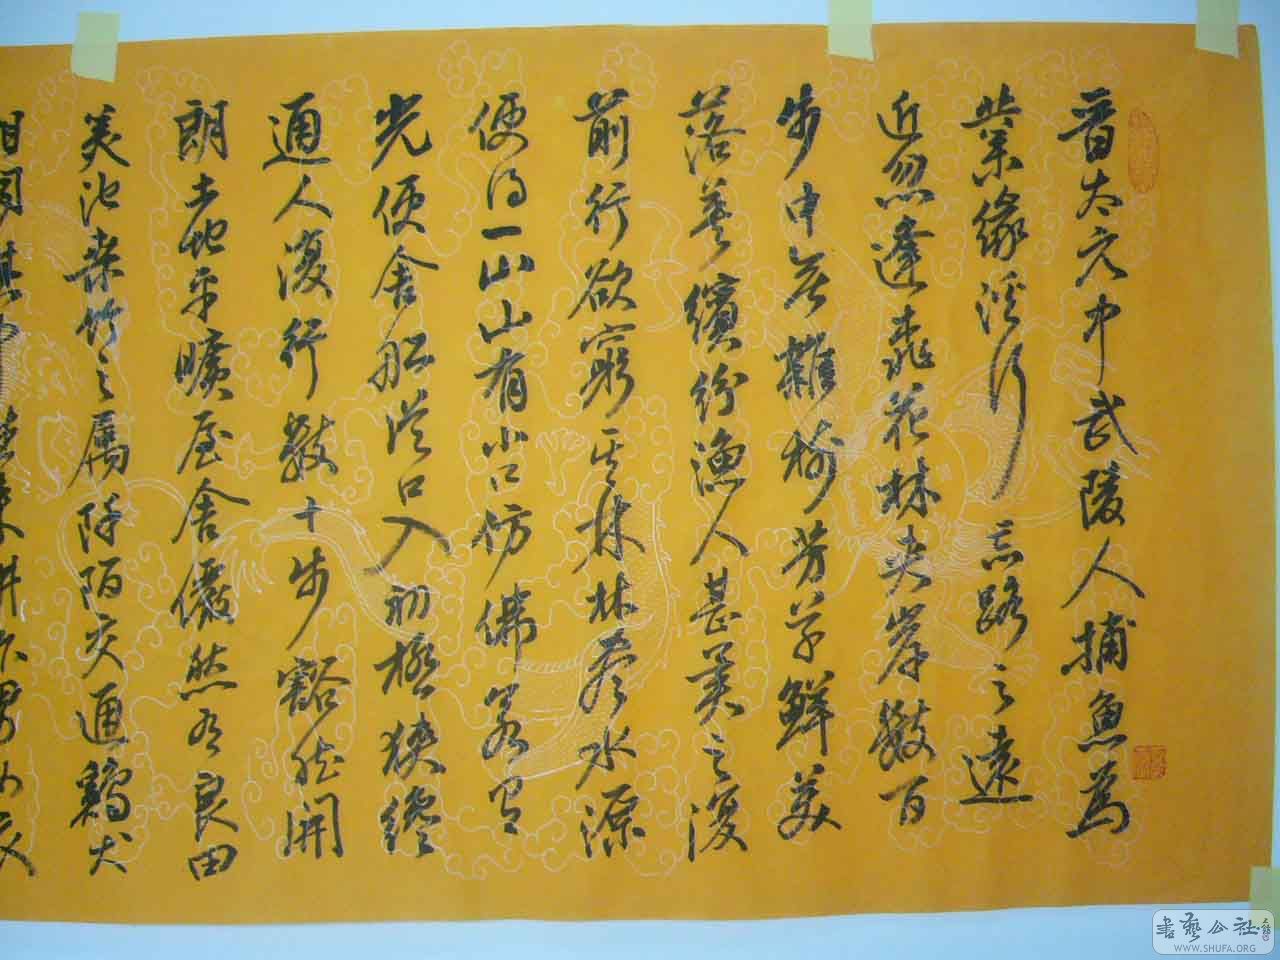 晉太元中武陵人捕魚爲
業緣溪行忘路之遠
近忽逢桃花林夾岸數百
步中無雜樹芳草鮮美
落英繽紛漁人甚異之復
前行欲窮其林林盡水源
便得一山山有小口仿佛若有
光便舍船從口入初極狹纔
通人復行數十步豁然開
朗土地平曠屋舍儼然有良田
美池桑竹之屬阡陌交通鷄犬
相聞其中往來耕作男女衣
書藝公社
WWW.SHUFA.ORG